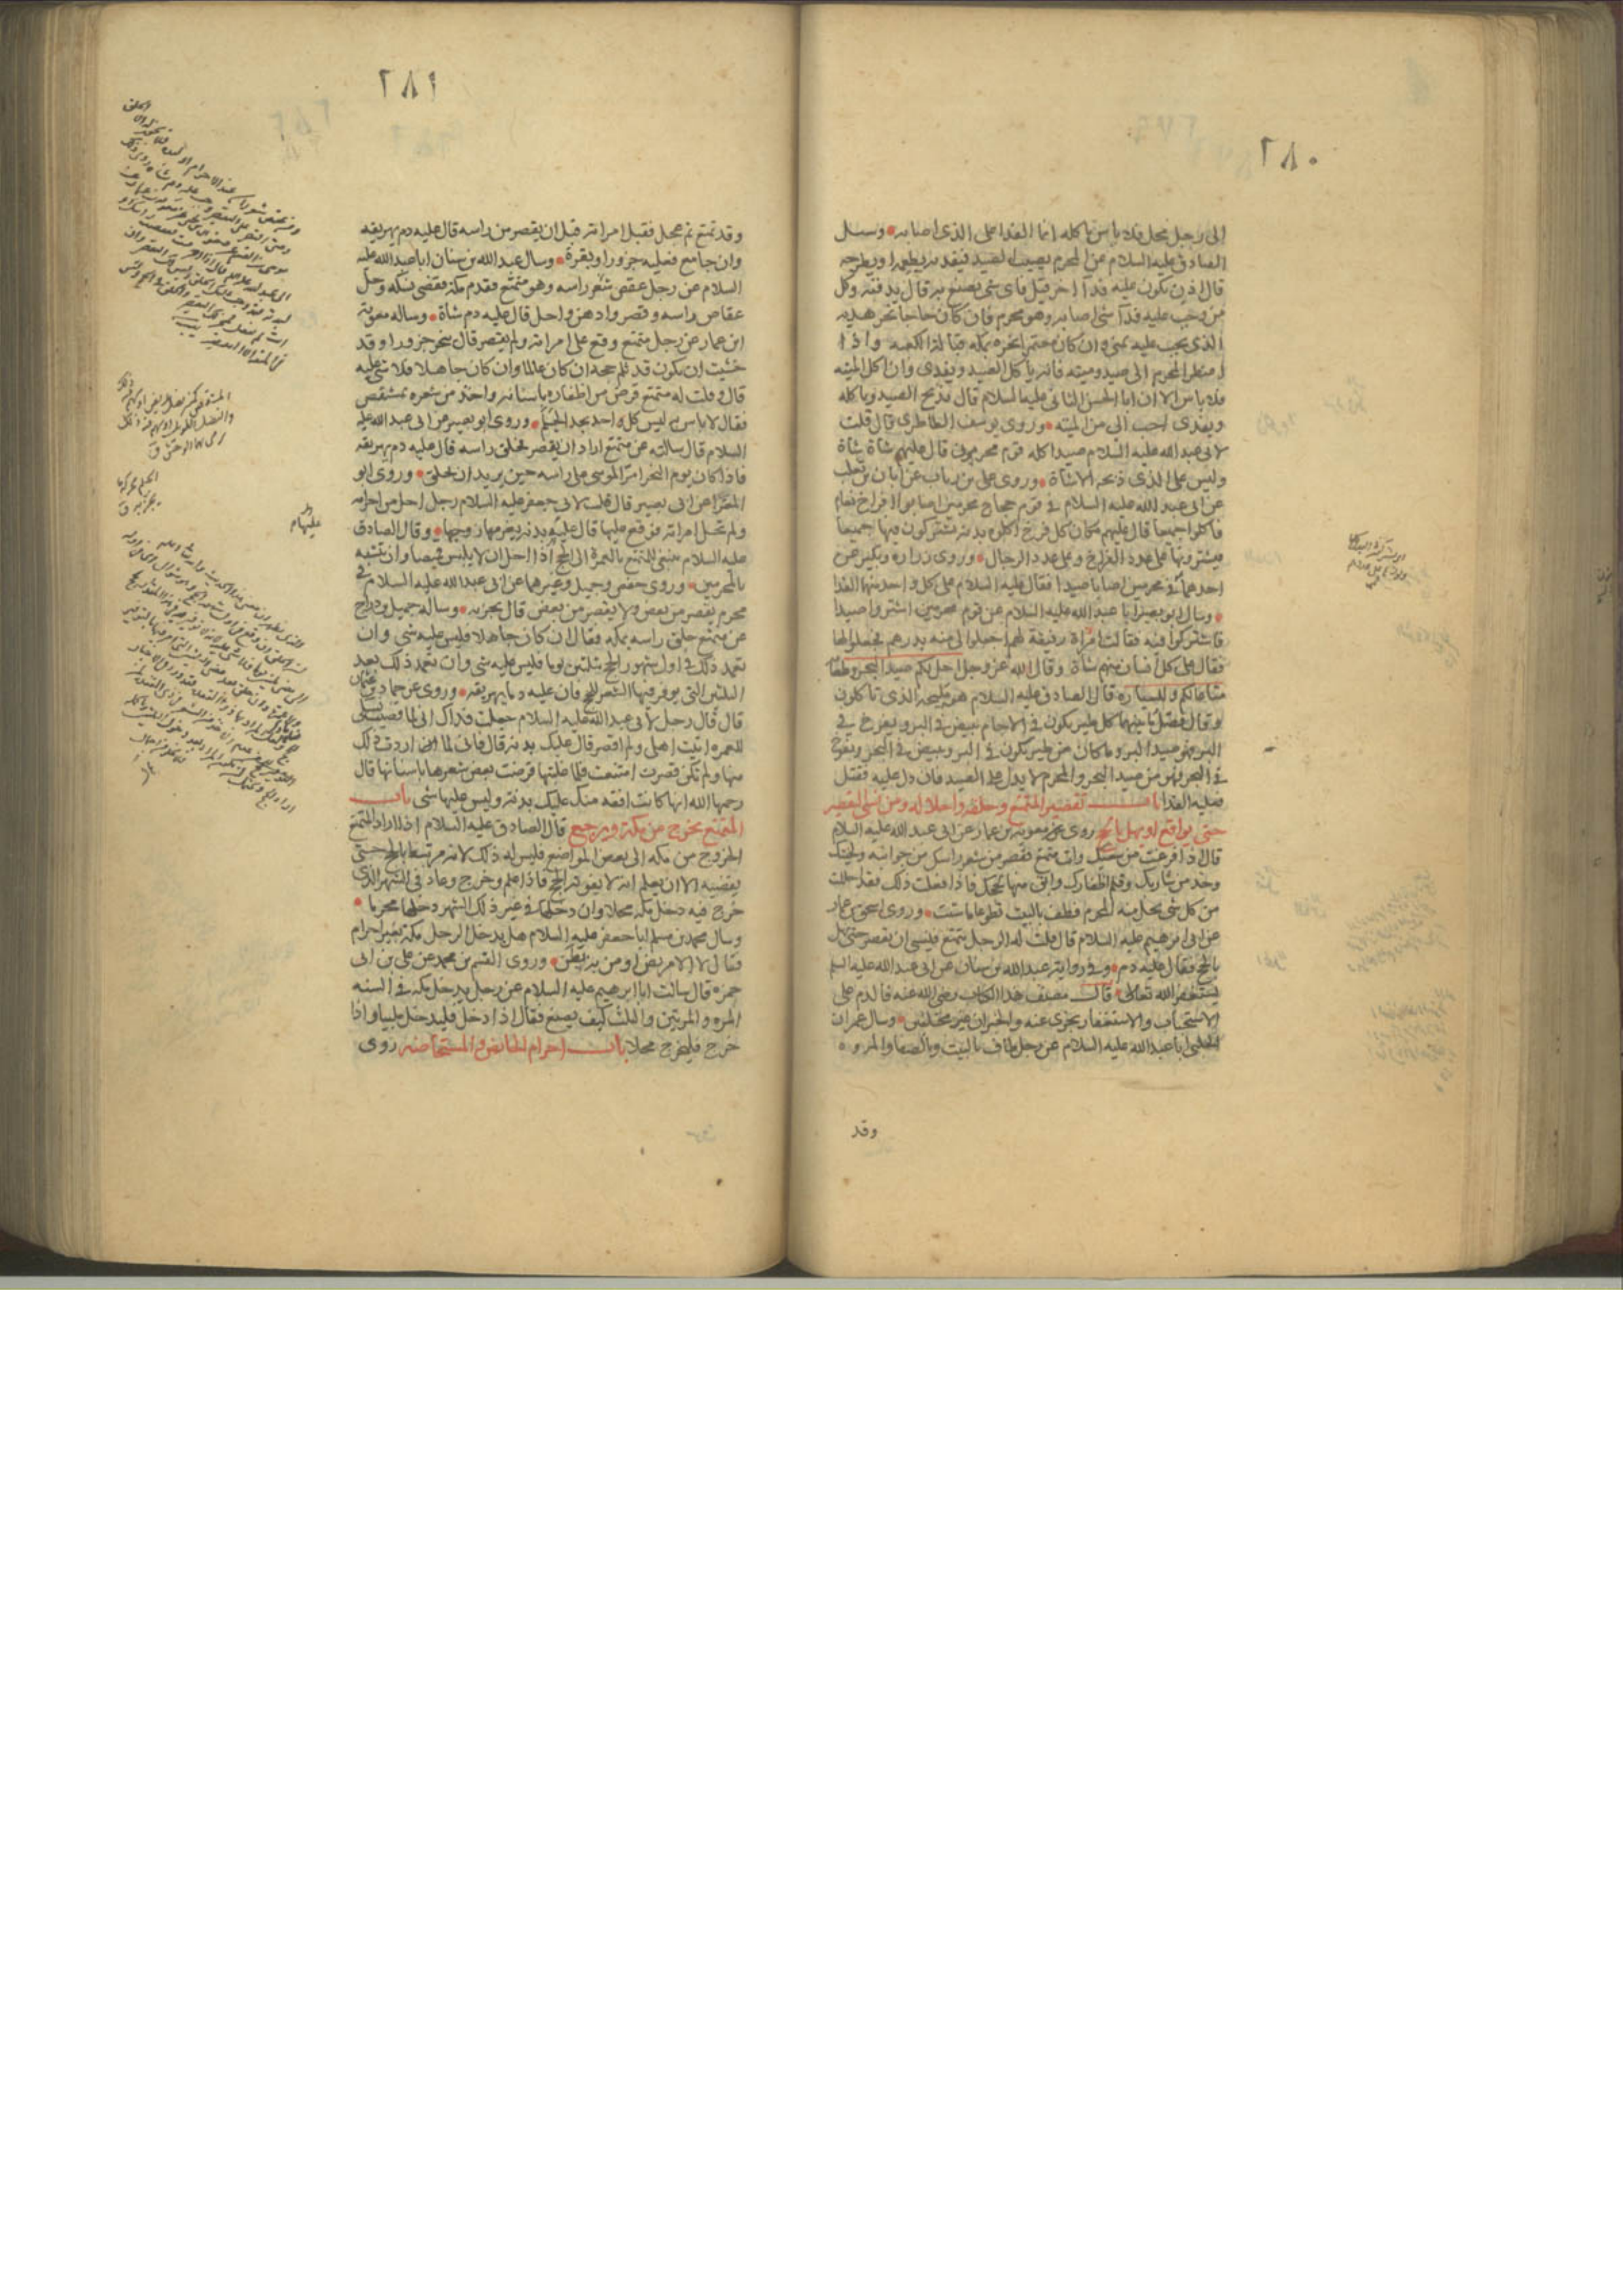 ٢٨٠
الى رجل محل فلا باس باكله انما الفدا على الذى اصابه وسئل
الصادق عليه السلام عن المحرم يصيب الصيد فيفديه يطعمه او يطرحه
قال اذن يكون عليه فدآ اخر قيل فاى شى يصنع به قال يدفنه وكل
من وجب عليه فدآ شى اصابه وهو محرم فان كان حاجا نحر هديه
الذى يجب عليه بمنى وان كان معتمرا نحره بمكه قبالة الكعبه واذا
اضطر المحرم الى صيد وميته فانه ياكل الصيد ويفدى وان اكل الميته
فلا باس الا ان ابا الحسن الثانى عليه السلام قال يذبح الصيد وياكله
ويفدى احب الى من الميته وروى يوسف الطاطرى قال قلت
لابى عبد الله عليه السلام صيد اكله قوم محرمون قال عليهم شاة شاة
وليس على الذى ذبحه الا شاة وروى على بن رئاب عن ابان بن تغلب
عن ابى عبد الله عليه السلام فى قوم حجاج محرمين اصابوا افراخ نعام
فاكلوا جميعا قال عليهم مكان كل فرخ اكلوه بدنه يشتركون فيها جميعا
فيشترونها على عدد الفراخ وعلى عدد الرجال وروى زراره وبكير عن
احدهما فى محرمين اصابا صيدا فقال عليه السلام على كل واحد منهما الفدا
وسال ابو بصير ابا عبد الله عليه السلام عن قوم محرمين اشتروا صيدا
فاشتركوا فيه فقالت امراة رفيقة لهم اجعلوا لى منه بدرهم فجعلوا لها
فقال على كل انسان منهم شاة وقال الله عز وجل احل لكم صيد البحر وطعامه
متاعا لكم وللسياره قال الصادق عليه السلام هو مليحه الذى تاكلون
وقال فصل ما بينهما كل طير يكون فى الاجام يبيض فى البر ويفرخ فى
البر فهو صيد البر وما كان من طير يكون فى البر ويبيض فى البحر ويفرخ
فى البحر فهو من صيد البحر والمحرم لا يدل على الصيد فان دل عليه فقتل
فعليه الفدا باب تقصير المتمتع وحلقه واحلاله ومن نسى التقصير
حتى يواقع او يهل بالحج روى عن معويه بن عمار عن ابى عبد الله عليه السلام
قال اذا فرغت من سعيك وانت متمتع فقصر من شعر راسك من جوانبه ولحيتك
وخذ من شاربك وقلم اظفارك وابق منها لحجك فاذا فعلت ذلك فقد احللت
من كل شى يحل منه المحرم فطف بالبيت تطوعا ما شئت وروى اسحق بن عمار
عن ابى ابرهيم عليه السلام قال قلت له الرجل يتمتع فينسى ان يقصر حتى يهل
بالحج فقال عليه دم وفى رواية عبد الله بن سنان عن ابى عبد الله عليه السلم
يستغفر الله تعالى قال مصنف هذا الكتاب رضى الله عنه فالدم على
الاستحباب والاستغفار يجزى عنه والخبران غير مختلفين وسال عمران
الحلبى ابا عبد الله عليه السلام عن رجل طاف بالبيت وبالصفا والمروه
وقد
٢٨١
وقد تمتع ثم عجل فقبل امراته قبل ان يقصر من راسه قال عليه دم يهريقه
وان جامع فعليه جزور او بقرة وسال عبد الله بن سنان ابا عبد الله عليه
السلام عن رجل عقص شعر راسه وهو متمتع فقدم مكة فقضى نسكه وحل
عقاص راسه وقصر وادهن واحل قال عليه دم شاة وساله معوية
ابن عمار عن رجل متمتع وقع على امراته ولم يقصر قال ينحر جزورا وقد
خشيت ان يكون قد ثلم حجه ان كان عالما وان كان جاهلا فلا شى عليه
قال وقلت له متمتع قرض من اظفاره باسنانه واخذ من شعره بمشقص
فقال لا باس به ليس كل احد يجد الجلم وروى ابو بصير عن ابى عبد الله عليه
السلام قال سالته عن متمتع اراد ان يقصر فحلق راسه قال عليه دم يهريقه
فاذا كان يوم النحر امر الموسى على راسه حين يريد ان يحلق وروى ابو
المغرا عن ابى بصير قال قلت لابى جعفر عليه السلام رجل احل من احرامه
ولم تحل امراته فوقع عليها قال عليه بدنه يغرمها زوجها وقال الصادق
عليه السلام ينبغى للمتمتع بالعمرة الى الحج اذا احل ان لا يلبس قميصا وان يتشبه
بالمحرمين وروى حفص وجميل وغيرهما عن ابى عبد الله عليه السلام فى
محرم يقصر من بعض ولا يقصر من بعض قال يجزيه وساله جميل بن دراج
عن متمتع حلق راسه بمكه فقال ان كان جاهلا فليس عليه شى وان
تعمد ذلك فى اول شهور الحج بثلثين يوما فليس عليه شى وان تعمد ذلك بعد
الثلثين التى يوفر فيها الشعر للحج فان عليه دما يهريقه وروى عن حماد بن عثمان
قال قال رجل لابى عبد الله عليه السلام جعلت فداك انى لما قضيت نسكى
للعمره اتيت اهلى ولم اقصر قال عليك بدنه قال فانى لما اردت ذلك
منها ولم تكن قصرت امتنعت فلما غلبتها قرضت بعض شعرها باسنانها قال
رحمها الله انها كانت افقه منك عليك بدنه وليس عليها شى باب
المتمتع يخرج من مكة ويرجع قال الصادق عليه السلام اذا اراد المتمتع
الخروج من مكه الى بعض المواضع فليس له ذلك لانه مرتبط بالحج حتى
يقضيه الا ان يعلم انه لا يفوته الحج فاذا علم وخرج وعاد فى الشهر الذى
خرج فيه دخل مكه محلا وان دخلها فى غير ذلك الشهر دخلها محرما
وسال محمد بن مسلم ابا جعفر عليه السلام هل يدخل الرجل مكة بغير احرام
فقال لا الا مريض او من به بطن وروى القسم بن محمد عن على بن ابى
حمزه قال سالت ابا ابرهيم عليه السلام عن رجل يدخل مكه فى السنه
المره والمرتين والثلث كيف يصنع فقال اذا دخل فليدخل ملبيا واذا
خرج فليخرج محلا باب احرام الحائض والمستحاضه روى